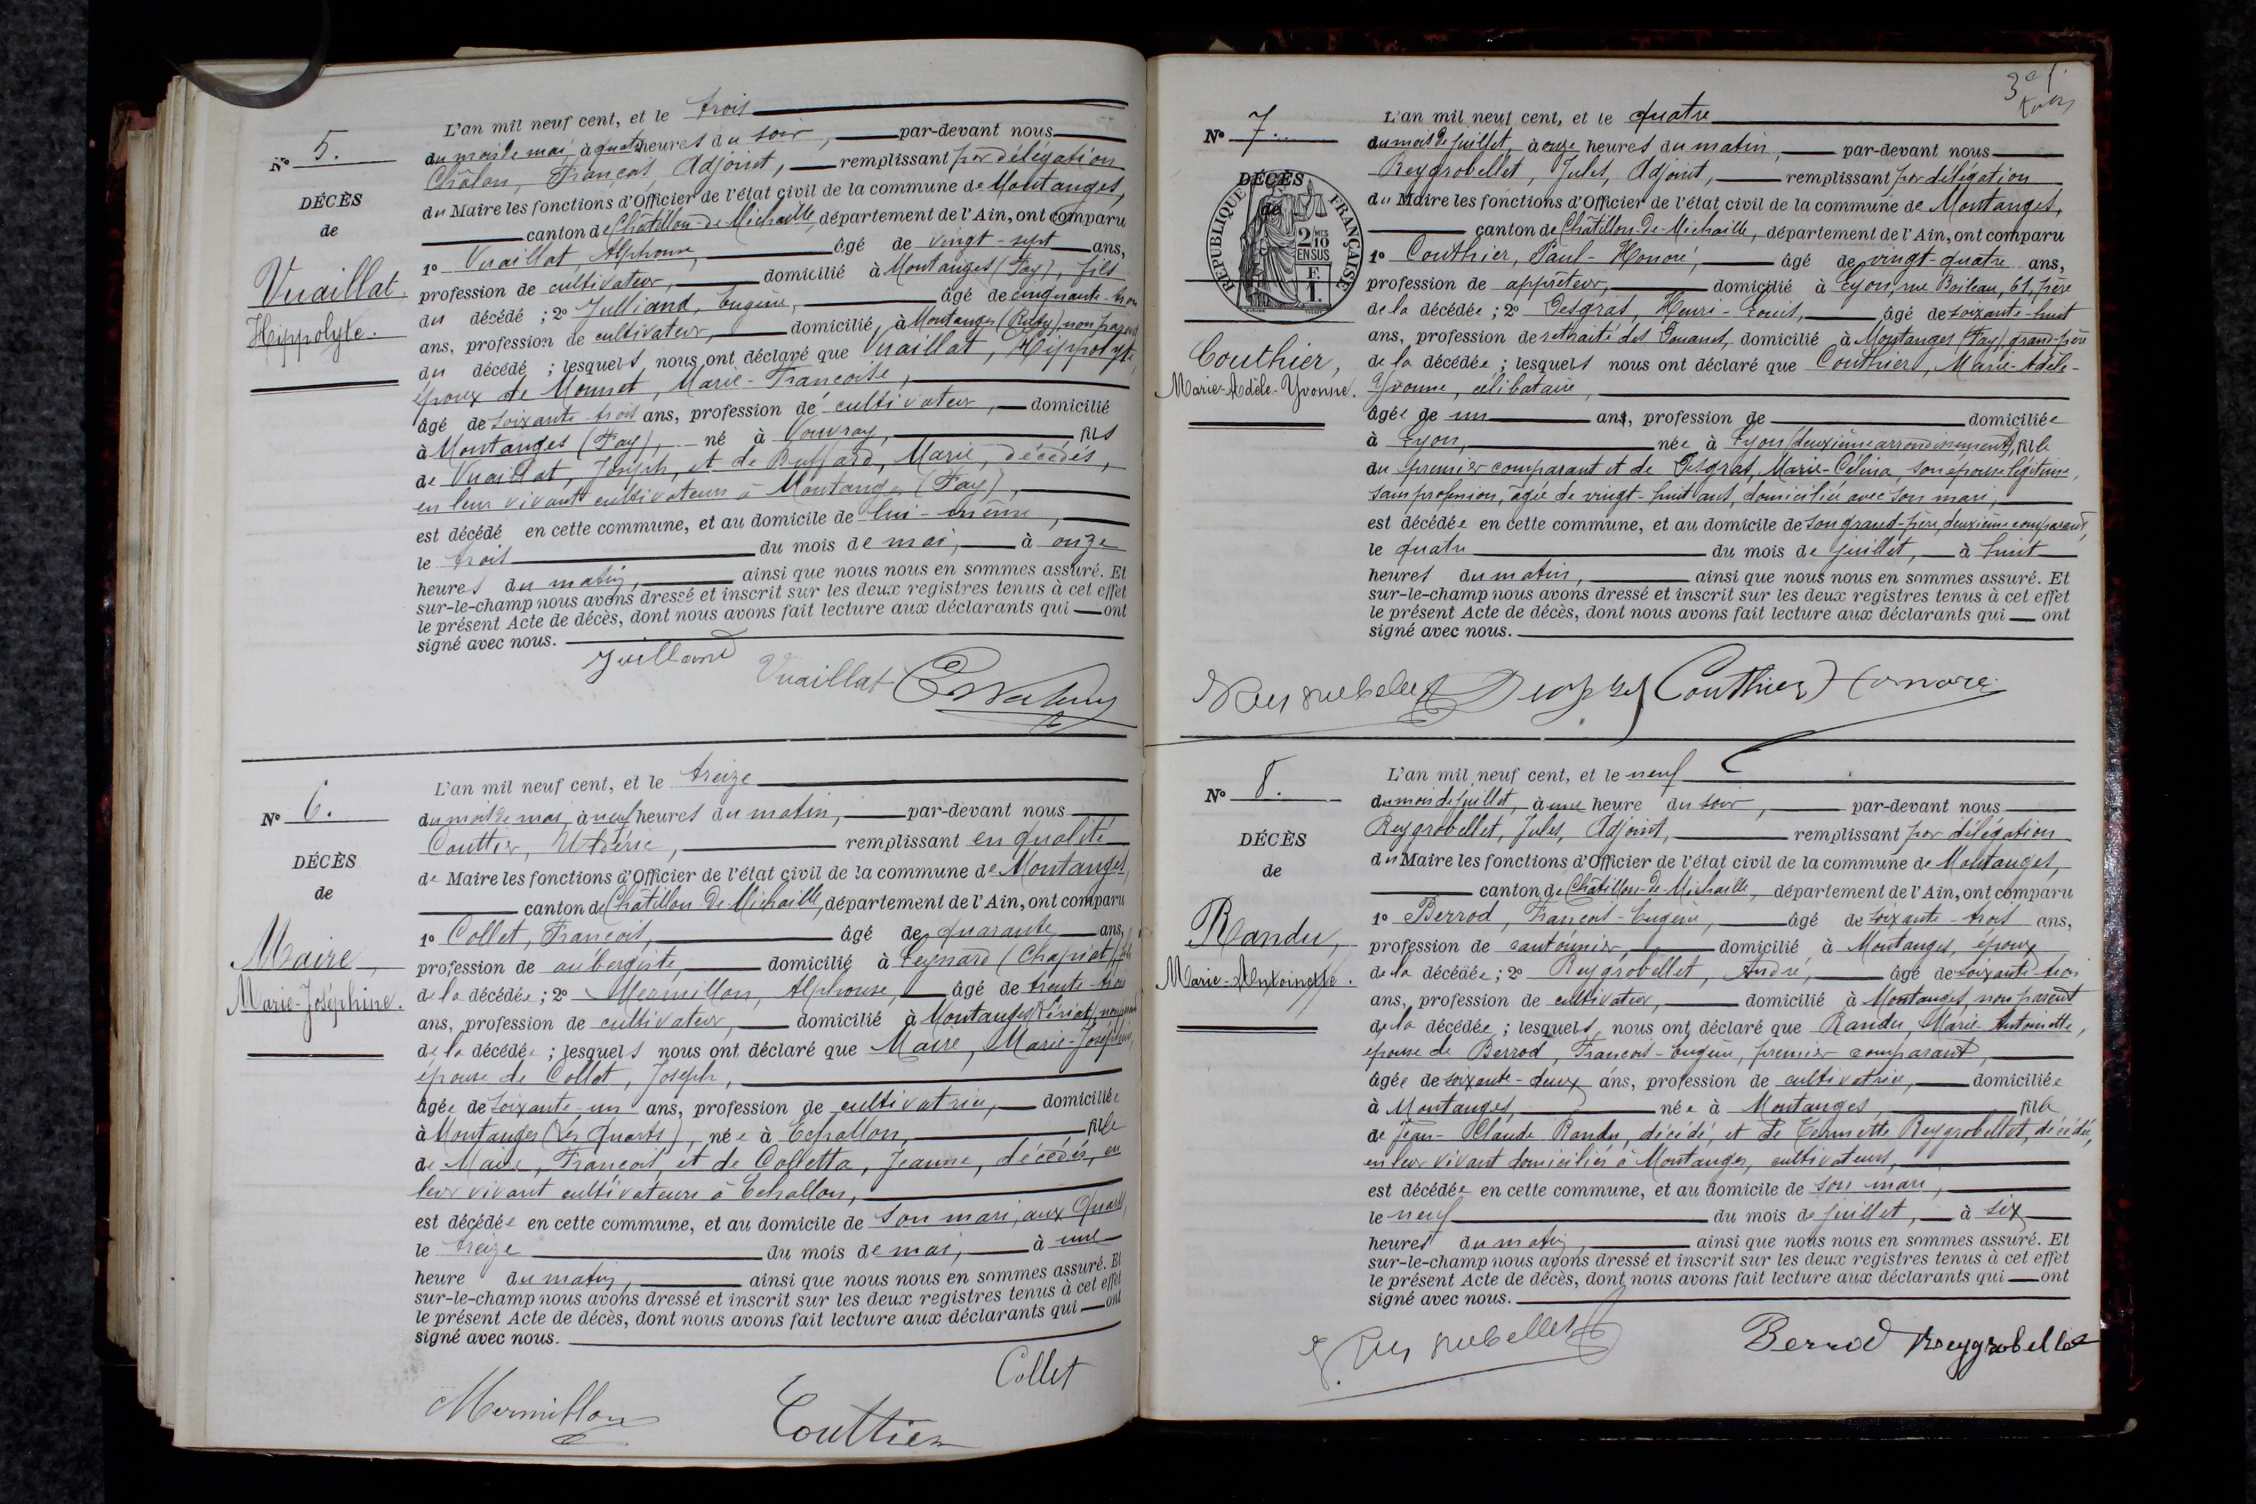 N° 5.
DÉCÈS
de
Vuaillat,
Hippolyte.
L'an mil neuf cent, et le trois
du mois de mai, à quatre heures du soir, par-devant nous
Châlon, François, Adjoint, remplissant par délégation
du Maire les fonctions d'Officier de l'état civil de la commune de Montanges,
canton de Châtillon-de-Michaille, département de l'Ain, ont comparu
1° Vuaillat, Alphonse, âgé de vingt-sept ans,
profession de cultivateur, domicilié à Montanges (Fay), fils
du décédé ; 2° Julliand, Eugène, âgé de cinquante-trois
ans, profession de cultivateur, domicilié à Montanges non parent
du décédé ; lesquels nous ont déclaré que Vuaillat, Hippolyte,
époux de Monnet, Marie-Françoise,
âgé de soixante-trois ans, profession de cultivateur, domicilié
à Montanges (Fay), né à Vouvray, fils
de Vuaillat, Joseph, et de Buffard, Marie, décédés,
en leur vivant cultivateurs à Montanges (Fay),
est décédé en cette commune, et au domicile de lui-même,
le trois du mois de mai, à onze
heures du matin, ainsi que nous nous en sommes assuré. Et
sur-le-champ nous avons dressé et inscrit sur les deux registres tenus à cet effet
le présent Acte de décès, dont nous avons fait lecture aux déclarants qui ont
signé avec nous.
Juilland Vuaillat
N° 6.
DÉCÈS
de
Maire,
Marie-Joséphine.
L'an mil neuf cent, et le treize
du mois de mai, à neuf heures du matin, par-devant nous
Couttier, remplissant en qualité
de Maire les fonctions d'Officier de l'état civil de la commune de Montanges,
canton de Châtillon-de-Michaille, département de l'Ain, ont comparu
1° Collet, François, âgé de quarante ans,
profession de aubergiste, domicilié à Leynard (Chapiat)
de la décédée ; 2° Mermillon, Alphonse, âgé de trente-trois
ans, profession de cultivateur, domicilié à Montanges
de la décédée ; lesquels nous ont déclaré que Maire, Marie-Joséphine,
épouse de Collet, Joseph,
âgée de soixante-un ans, profession de cultivatrice, domiciliée
à Montanges (Les Quarts), née à Echallon, fille
de Maire, François, et de Colletta, Jeanne, décédés, en
leur vivant cultivateurs à Echallon,
est décédée en cette commune, et au domicile de son mari, aux Quarts,
le treize du mois de mai, à une
heure du matin, ainsi que nous nous en sommes assuré. Et
sur-le-champ nous avons dressé et inscrit sur les deux registres tenus à cet effet
le présent Acte de décès, dont nous avons fait lecture aux déclarants qui ont
signé avec nous.
Collet
Mermillon Couttier
N° 7.
DÉCÈS
de
RÉPUBLIQUE FRANÇAISE
2/10 EN SUS
F. 1.
Couthier,
Marie-Adèle-Yvonne.
L'an mil neuf cent, et le quatre
du mois de juillet, à onze heures du matin, par-devant nous
Reygrobellet, Jules, Adjoint, remplissant par délégation
du Maire les fonctions d'Officier de l'état civil de la commune de Montanges,
canton de Châtillon-de-Michaille, département de l'Ain, ont comparu
1° Couthier, Paul-Honoré, âgé de vingt-quatre ans,
profession de apprêteur, domicilié à Lyon, rue Boileau, 61, père
de la décédée ; 2° Desgras, Henri-Louis, âgé de soixante-huit
ans, profession de retraité des Douanes, domicilié à Montanges (Fay), grand-père
de la décédée ; lesquels nous ont déclaré que Couthier, Marie-Adèle-
Yvonne, célibataire,
âgée de un ans, profession de domiciliée
à Lyon, née à Lyon (deuxième arrondissement), fille
du premier comparant et de Desgras, Marie-Célina, son épouse légitime,
sans profession, âgée de vingt-huit ans, domiciliée avec son mari,
est décédée en cette commune, et au domicile de son grand-père, deuxième comparant,
le quatre du mois de juillet, à huit
heures du matin, ainsi que nous nous en sommes assuré. Et
sur-le-champ nous avons dressé et inscrit sur les deux registres tenus à cet effet
le présent Acte de décès, dont nous avons fait lecture aux déclarants qui ont
signé avec nous.
Couthier Honoré
N° 8.
DÉCÈS
de
Randu,
Marie-Antoinette.
L'an mil neuf cent, et le neuf
du mois de juillet, à une heure du soir, par-devant nous
Reygrobellet, Jules, Adjoint, remplissant par délégation
du Maire les fonctions d'Officier de l'état civil de la commune de Montanges,
canton de Châtillon-de-Michaille, département de l'Ain, ont comparu
1° Berrod, François-Eugène, âgé de soixante-trois ans,
profession de cantonnier, domicilié à Montanges, époux
de la décédée ; 2° Reygrobellet, André, âgé de soixante-trois
ans, profession de cultivateur, domicilié à Montanges, non parent
de la décédée ; lesquels nous ont déclaré que Randu, Marie-Antoinette,
épouse de Berrod, François-Eugène, premier comparant,
âgée de soixante-deux ans, profession de cultivatrice, domiciliée
à Montanges, née à Montanges, fille
de Jean-Claude Randu, décédé, et de Reygrobellet, décédée,
en leur vivant domiciliés à Montanges, cultivateurs,
est décédée en cette commune, et au domicile de son mari,
le neuf du mois de juillet, à six
heures du matin, ainsi que nous nous en sommes assuré. Et
sur-le-champ nous avons dressé et inscrit sur les deux registres tenus à cet effet
le présent Acte de décès, dont nous avons fait lecture aux déclarants qui ont
signé avec nous.
Berrod Reygrobellet